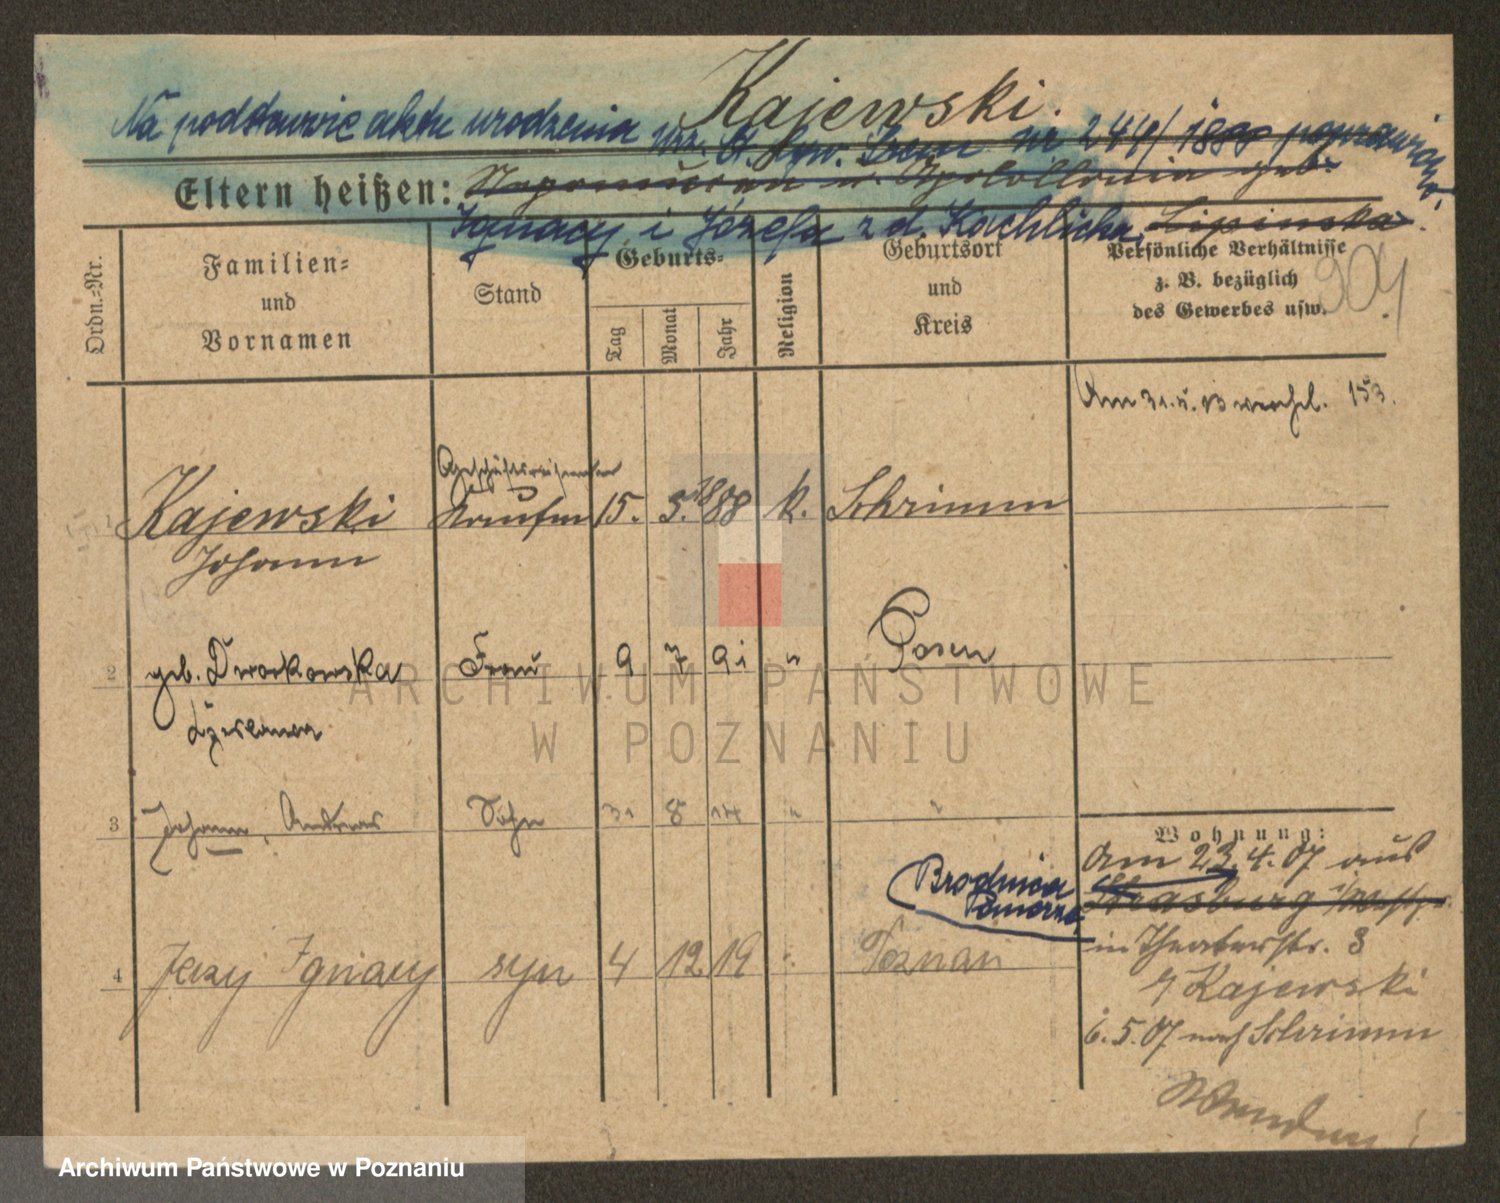 Kajewski.
Na podstawie aktu urodzenia Urz. St. Cyw. Śrem nr 244/1888 poprawiono.
Eltern heißen: Nepomucen u. Apolollonia geb.
Ignacy i Józefa z d. Kachlicka, Lipinska.
Ordn.-Nr.
Familien- und Vornamen
Stand
Geburts-
Tag
Monat
Jahr
Religion
Geburtsort und Kreis
Persönliche Verhältnisse
z. B. bezüglich
des Gewerbes usw.
904
Am 31.5.13 153.
Geschäftsreisender
Kajewski Kaufm 15. 5. 1888 k. Schrimm
Johann
2 geb. Dworkowska Frau 9 7 91 " Posen
Czeslawa
3 Johann, Andreas Sohn 31 8 14 " "
4 Jerzy Ignacy syn 4 12. 19 " Poznań
Wohnung:
Am 23.4.07 aus
Brodnica
Pomorze
Strasburg i/Westpr.
in Theaterstr. 3
b/Kajewski
6.5.07 nach Schrimm
ARCHIWUM PAŃSTWOWE
W POZNANIU
Archiwum Państwowe w Poznaniu